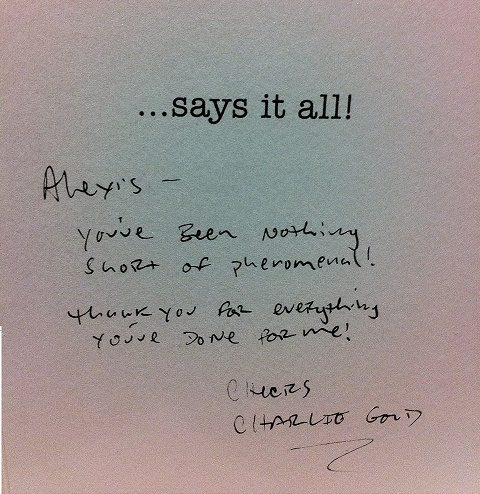 ...says it all!
Alexis –
You've Been Nothing
Short of phenomenal!
Thank you for everything
you've Done for me!
Cheers
CHARLIE GOLD